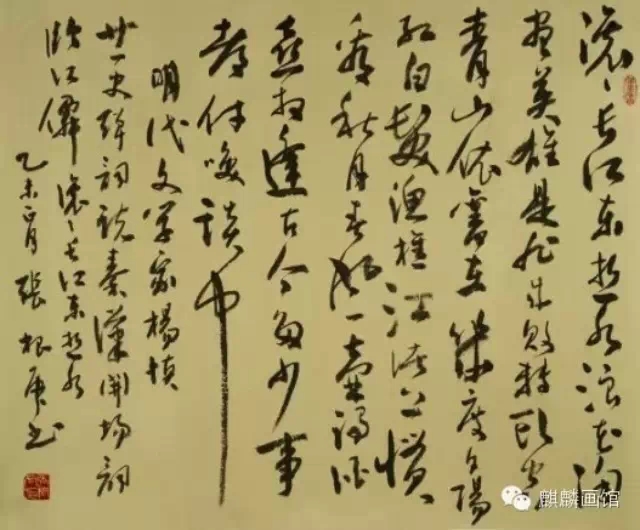 滚〻长江东逝水浪花淘
尽英雄是非成败转头空
青山依舊在幾度夕陽
红白髮渔樵江渚上惯
看秋月春风一壶濁酒
喜相逢古今多少事
都付咲談中
明代文学家楊慎
廿一史弹词说秦漢開場词
临江僊滚〻长江东逝水
乙未正月張根虎书
麒麟画馆